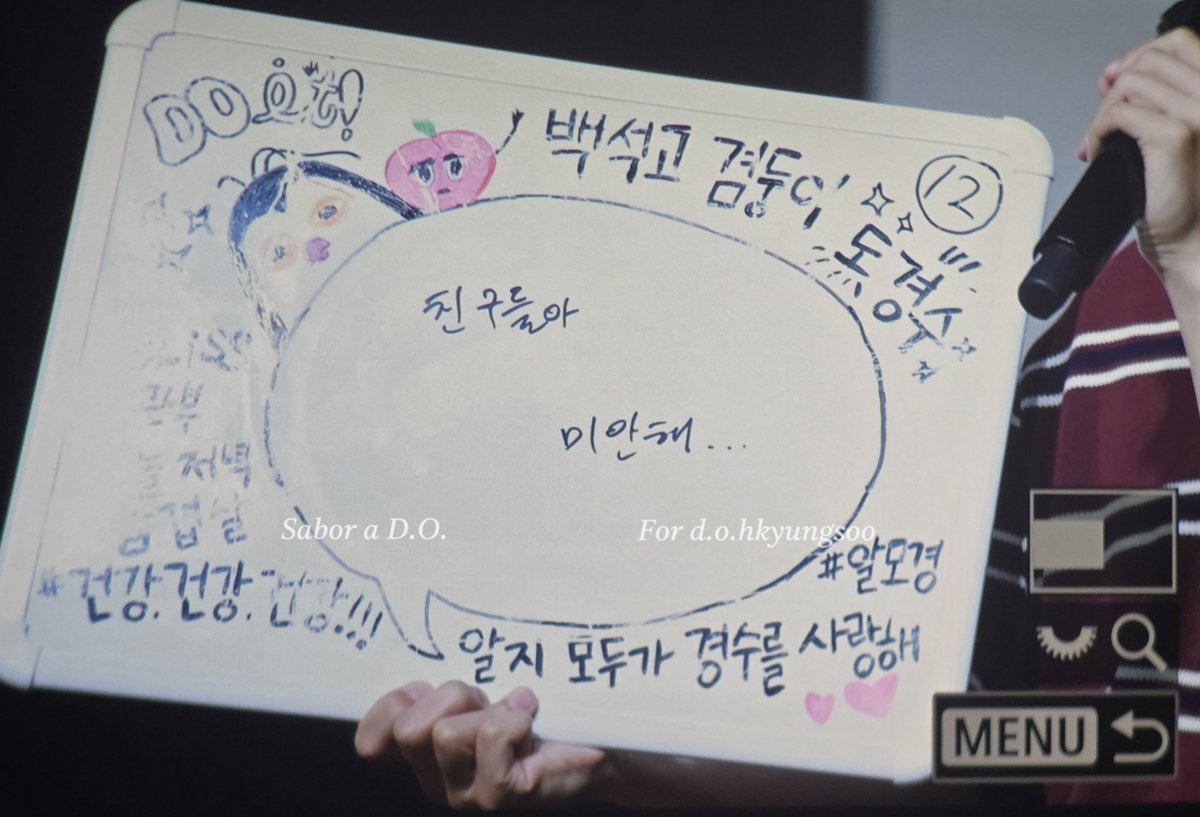 DO 요
백석고 검둥이
12
도경수
친구들아
미안해...
저녁
Sabor a D.O.
For d.o.hkyungsoo
#알모경
#건강.건강.건강!!!
알지 모두가 경수를 사랑해
MENU